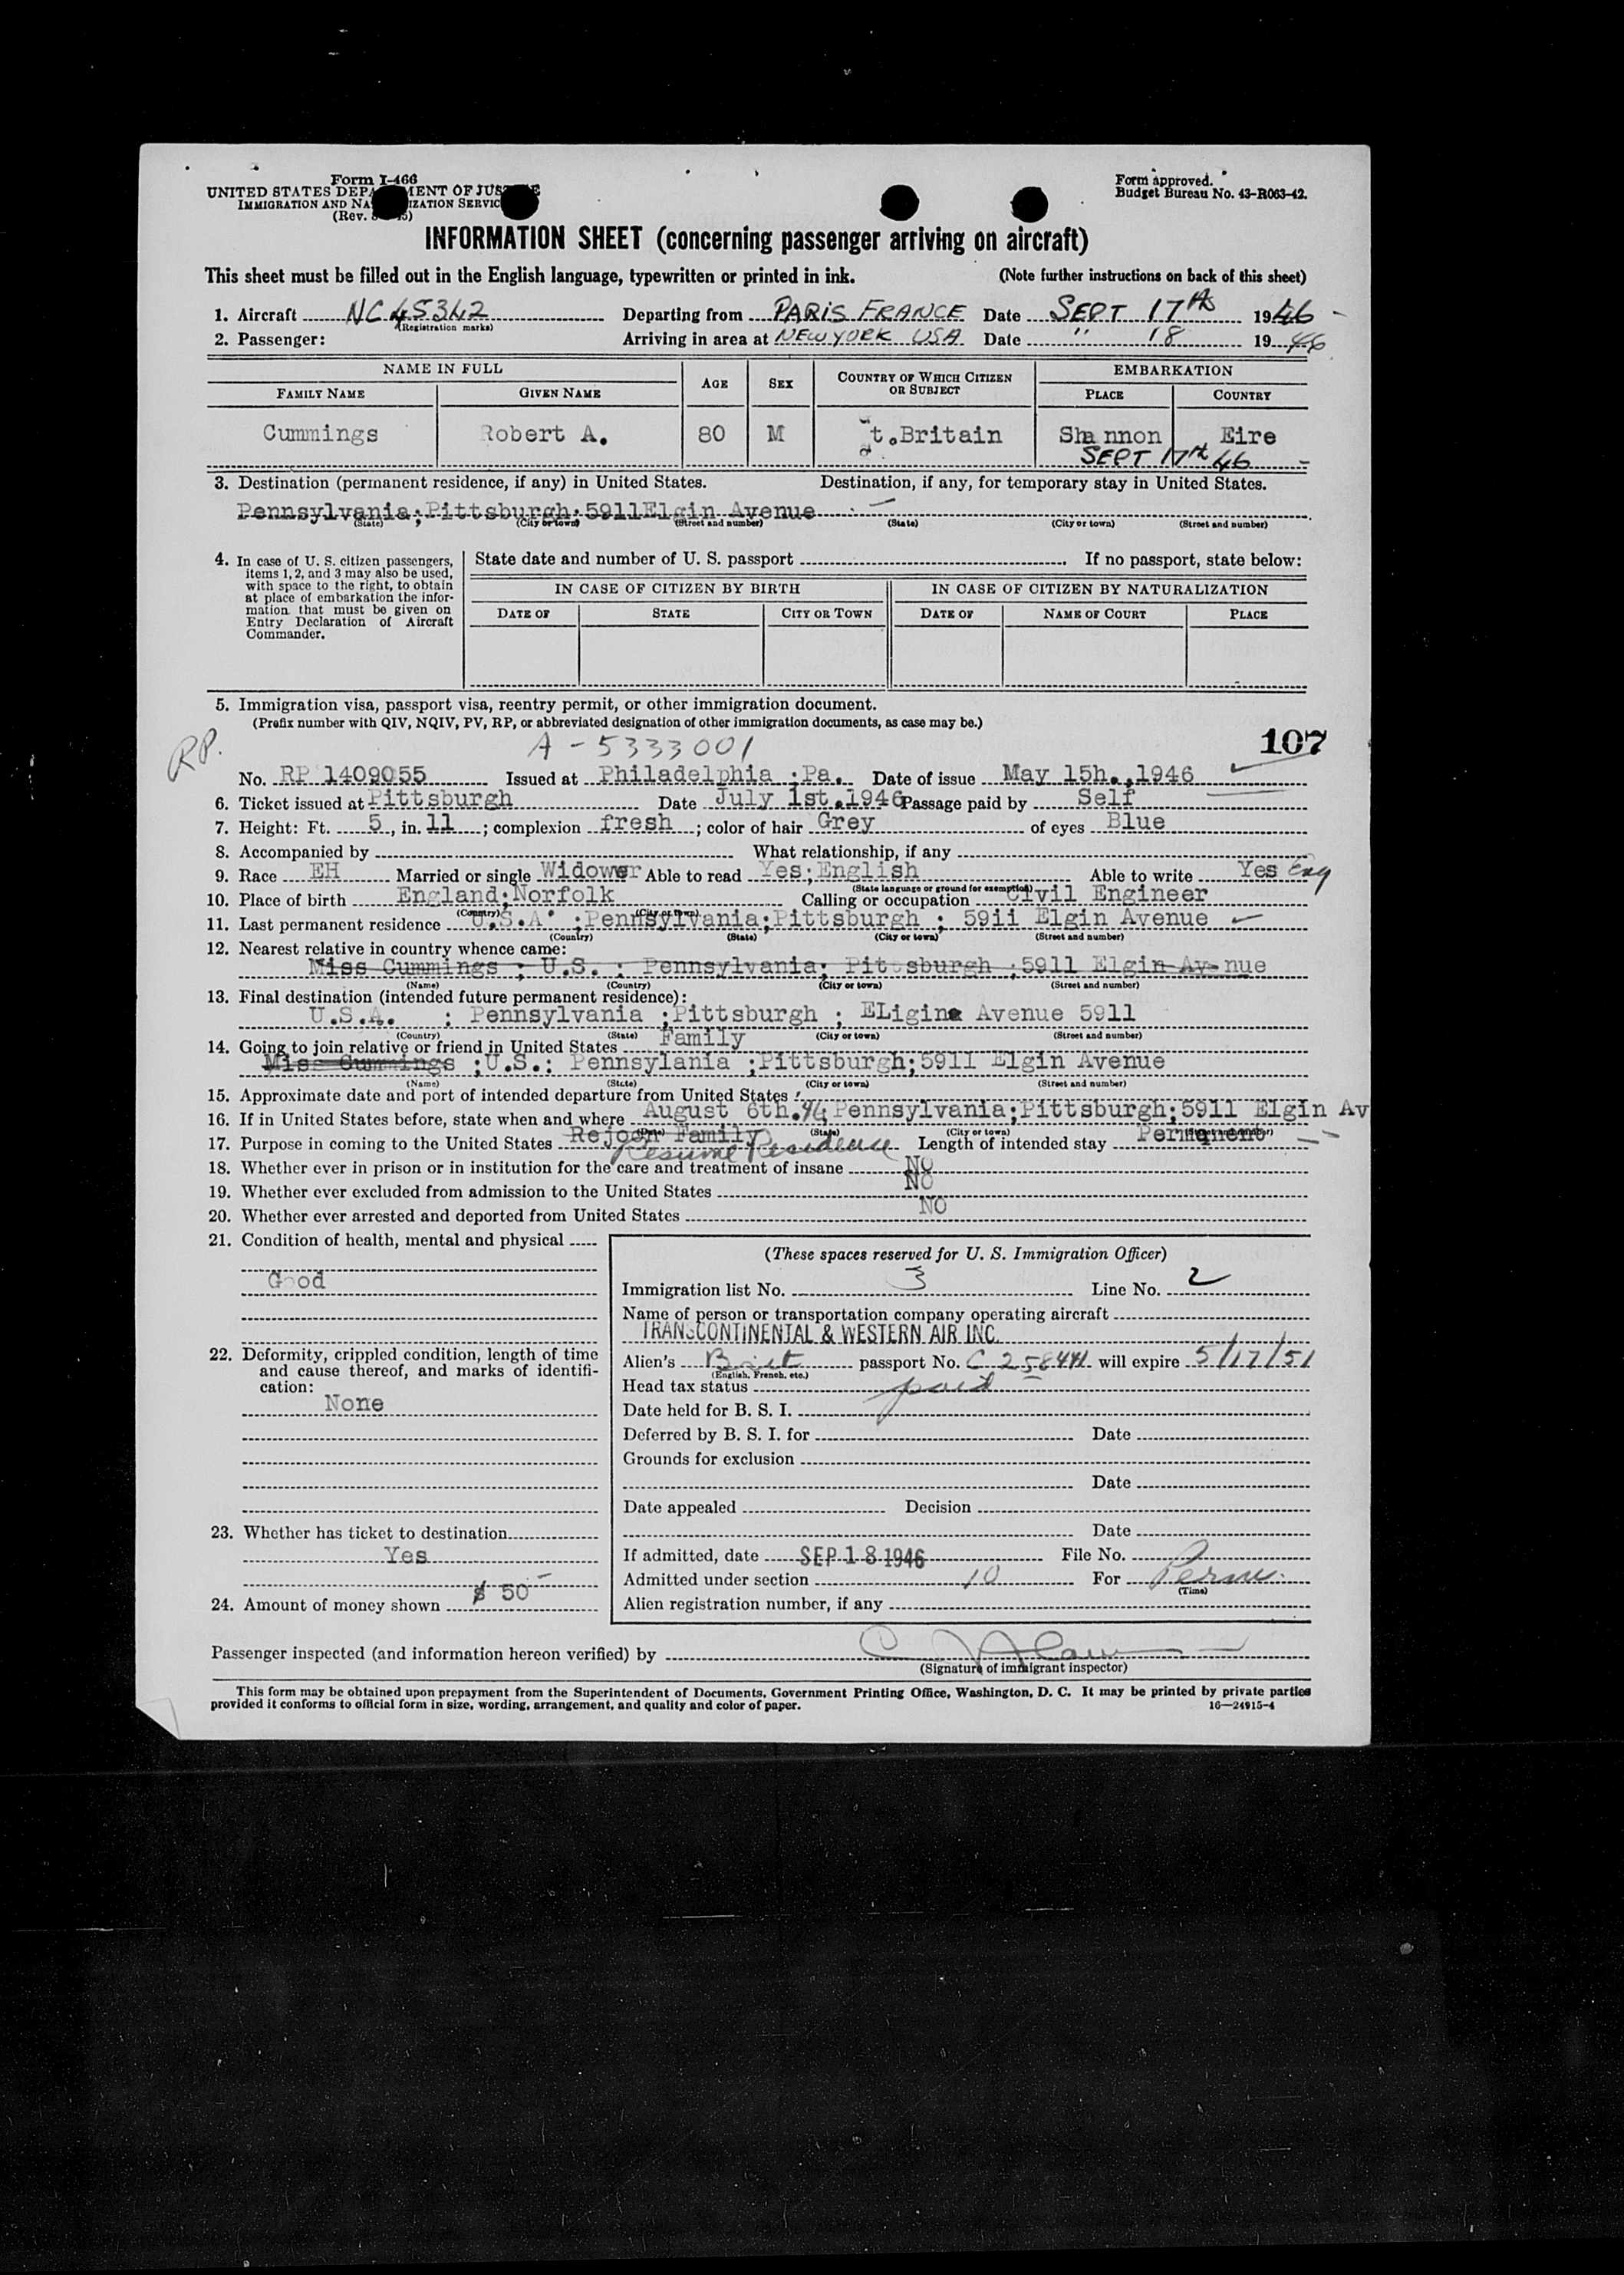 Form I-466
UNITED STATES DEPA MENT OF JUS E
IMMIGRATION AND NA IZATION SERVIC
(Rev. 5)
Form approved.
Budget Bureau No. 43-R063-42.
INFORMATION SHEET (concerning passenger arriving on aircraft)
This sheet must be filled out in the English language, typewritten or printed in ink. (Note further instructions on back of this sheet)
1. Aircraft NC 45342 Departing from PARIS FRANCE Date SEPT 17th 1946
(Registration marks)
2. Passenger: Arriving in area at NEW YORK USA Date " 18 1946
NAME IN FULL AGE SEX COUNTRY OF WHICH CITIZEN OR SUBJECT EMBARKATION
FAMILY NAME GIVEN NAME PLACE COUNTRY
Cummings Robert A. 80 M t.Britain Shannon Eire
SEPT 17th 46
3. Destination (permanent residence, if any) in United States. Destination, if any, for temporary stay in United States.
Pennsylvania;Pittsburgh;5911Elgin Avenue
(State) (City or town) (Street and number) (State) (City or town) (Street and number)
4. In case of U. S. citizen passengers, items 1, 2, and 3 may also be used, with space to the right, to obtain at place of embarkation the information that must be given on Entry Declaration of Aircraft Commander.
State date and number of U. S. passport If no passport, state below:
IN CASE OF CITIZEN BY BIRTH IN CASE OF CITIZEN BY NATURALIZATION
DATE OF STATE CITY OR TOWN DATE OF NAME OF COURT PLACE
5. Immigration visa, passport visa, reentry permit, or other immigration document.
(Prefix number with QIV, NQIV, PV, RP, or abbreviated designation of other immigration documents, as case may be.)
RP. A-5333001 107
No. RP 1409055 Issued at Philadelphia ;Pa. Date of issue May 15h.,1946
6. Ticket issued at Pittsburgh Date July 1st.1946 Passage paid by Self
7. Height: Ft. 5, in. 11; complexion fresh; color of hair Grey of eyes Blue
8. Accompanied by What relationship, if any
9. Race EH Married or single Widower Able to read Yes;English Able to write Yes Eng
(State language or ground for exemption)
10. Place of birth England;Norfolk Calling or occupation Civil Engineer
(Country) (City or town)
11. Last permanent residence U.S.A. ;Pennsylvania;Pittsburgh ; 5911 Elgin Avenue
(Country) (State) (City or town) (Street and number)
12. Nearest relative in country whence came:
Miss Cummings ; U.S. ; Pennsylvania; Pittsburgh ;5911 Elgin Avenue
(Name) (Country) (City or town) (Street and number)
13. Final destination (intended future permanent residence):
U.S.A. ; Pennsylvania ;Pittsburgh ; ELigin Avenue 5911
(Country) (State) (City or town) (Street and number)
14. Going to join relative or friend in United States Family
Miss Cummings ;U.S.; Pennsylania ;Pittsburgh;5911 Elgin Avenue
(Name) (State) (City or town) (Street and number)
15. Approximate date and port of intended departure from United States
16. If in United States before, state when and where August 6th.46; Pennsylvania;Pittsburgh;5911 Elgin Av
(Date) (State) (City or town) (Street and number)
17. Purpose in coming to the United States Rejoin Family Resume Residence Length of intended stay Permanent
18. Whether ever in prison or in institution for the care and treatment of insane NO
19. Whether ever excluded from admission to the United States NO
20. Whether ever arrested and deported from United States NO
21. Condition of health, mental and physical
Good
22. Deformity, crippled condition, length of time and cause thereof, and marks of identification:
None
23. Whether has ticket to destination
Yes
24. Amount of money shown $ 50
(These spaces reserved for U. S. Immigration Officer)
Immigration list No. 3 Line No. 2
Name of person or transportation company operating aircraft
TRANSCONTINENTAL & WESTERN AIR INC.
Alien's Brit passport No. C 258441 will expire 5/17/51
(English, French, etc.)
Head tax status paid
Date held for B. S. I.
Deferred by B. S. I. for Date
Grounds for exclusion
Date
Date appealed Decision
Date
If admitted, date SEP 18 1946 File No.
Admitted under section 10 For Perm.
(Time)
Alien registration number, if any
Passenger inspected (and information hereon verified) by
(Signature of immigrant inspector)
This form may be obtained upon prepayment from the Superintendent of Documents, Government Printing Office, Washington, D. C. It may be printed by private parties
provided it conforms to official form in size, wording, arrangement, and quality and color of paper. 16—24915-4